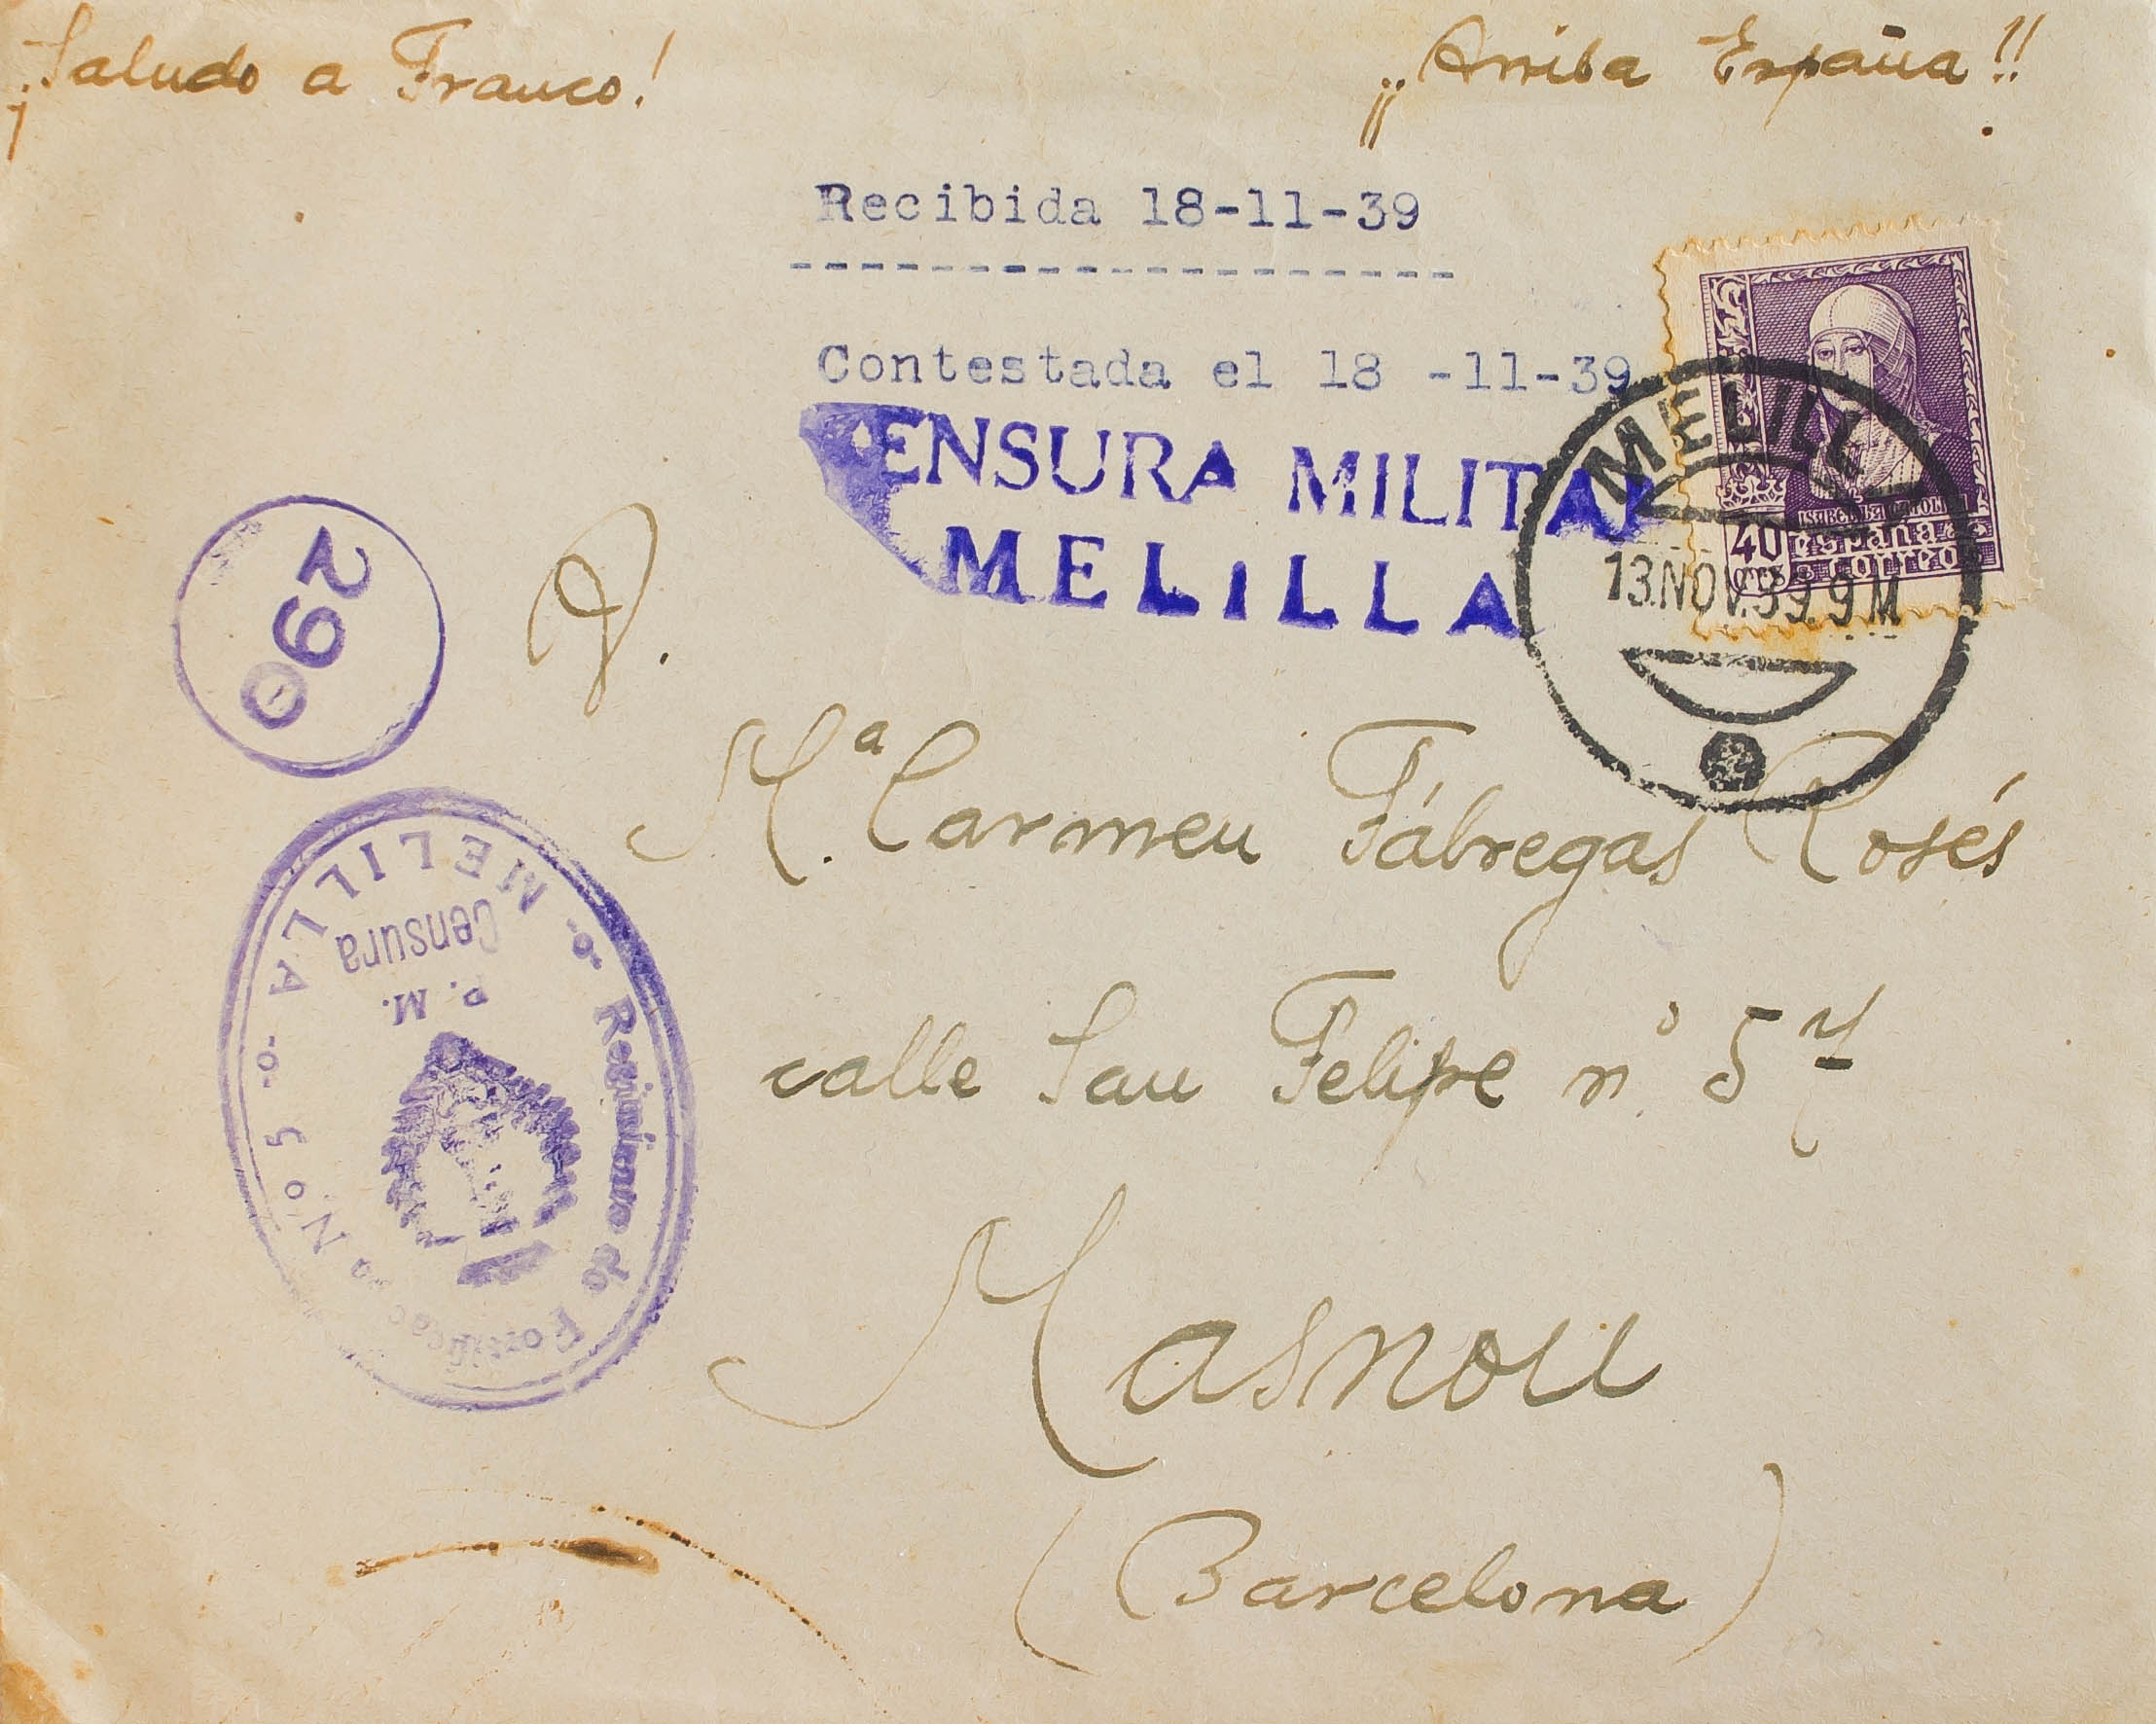 ¡Saludo a Franco!
¡¡Arriba España!!
Recibida 18-11-39
--------------------
Contestada el 18 -11-39
ENSURA MILITAR
MELILLA
MELILL
13.NOV.39.9M
ISABEL LA CATOLICA
40 españa
CTS correos
290
-o- MELILLA -o-
Censura
P. M.
Regimiento de No 5
D.
Mª. Carmen Fábregas Rosés
calle San Felipe nº 57
Masnou
(Barcelona)